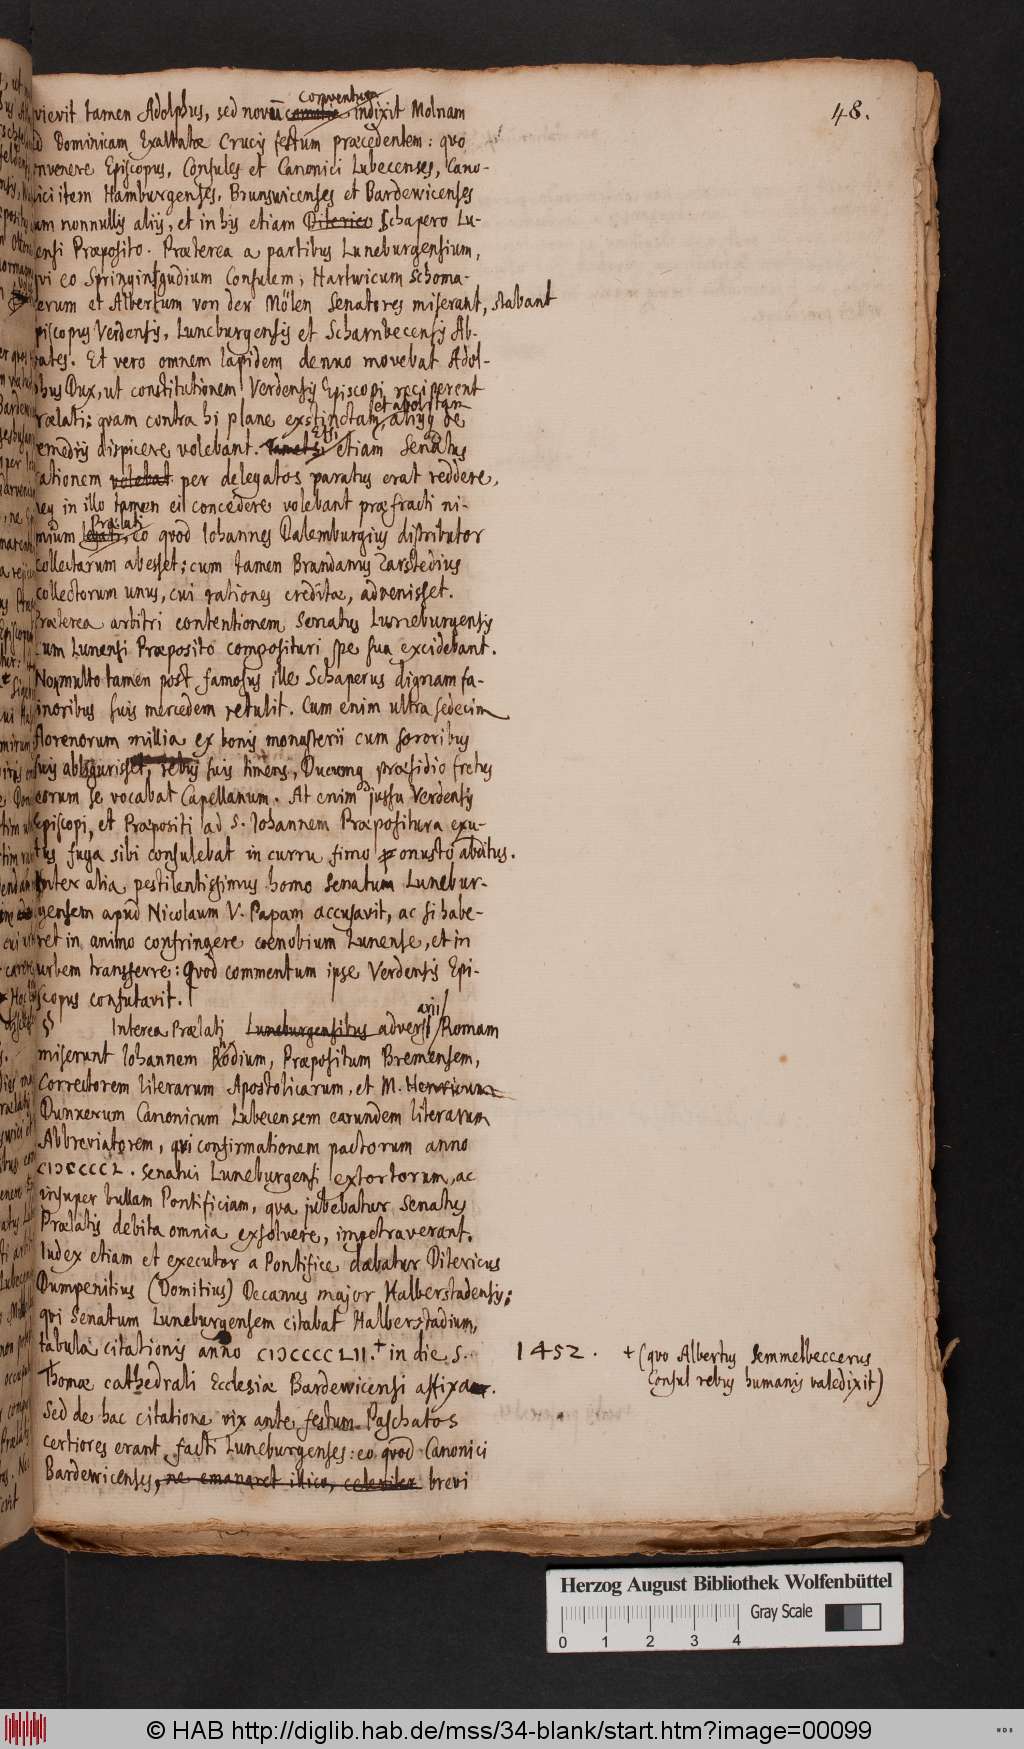 48.
vievit tamen Adolphus, sed novū comitia conventum indixit Molnam
Dominicam Exaltatæ Crucis festum præcedentem: quo
nvenere Episcopus, Consules et Canonici Lubecenses, Cano-
ici item Hamburgenses, Brunswicenses et Bardewicenses
um nonnullis aliis, et in his etiam Diterico Schapero Lu-
ensi Præposito. Præterea a partibus Luneburgensium,
qvi eo Springinsgudium Consulem, Hartwicum Schoma-
erum et Albertum von der Mölen Senatores miserant, stabant
piscopus Verdensis, Luneburgensis et Scharnbecensis Ab-
bates. Et vero omnem lapidem denuo movebat Adol-
phus Dux, ut constitutionem Verdensis Episcopi reciperent
rælati: qvam contra hi plane exstinctam et abolitam, aliisq de
emediis dispicere volebant. Tametsi Etsi etiam Senatus
rationem volebat per delegatos paratus erat reddere,
in illo tamen ei concedere volebant præfracti ni-
mium legati Prælati, eo qvod Iohannes Dalemburgius distributor
collectarum abesset; cum tamen Brandanus Zarstedius
collectorum unus, cui rationes creditæ, advenisset.
Præterea arbitri contentionem Senatus Luneburgensis
cum Lunensi Præposito composituri spe sua excidebant.
Non multo tamen post famosus ille Schaperus dignam fa-
cinoribus suis mercedem retulit. Cum enim ultra sedecim
florenorum millia ex bonis monasterii cum sororibus
suis abligurisset, rebus suis timens, Ducumq præsidio fretus
eorum se vocabat Capellanum. At enim jussu Verdensis
Episcopi, et Præpositi ad S. Iohannem Præpositura exu-
tus fuga sibi consulebat in curru fimo onusto abditus.
Inter alia pestilentissimus homo Senatum Lunebur-
gensem apud Nicolaum V. Papam accusavit, ac si habe-
ret in animo confringere cœnobium Lunense, et in
urbem transferre: Qvod commentum ipse Verdensis Epi-
scopus confutavit.
§ Interea Prælati Luneburgensibus adversarii Romam
miserunt Iohannem Rodium, Præpositum Bremensem,
Correctorem literarum Apostolicarum, et M. Henricum
Dunxerum Canonicum Lubecensem earundem literarum
Abbreviatorem, qvi confirmationem pactorum anno
CIƆCCCCL. Senatui Luneburgensi extortorum, ac
insuper bullam Pontificiam, qva jubebatur Senatus
Prælatis debita omnia exsolvere, impetraverant.
Iudex etiam et executor a Pontifice dabatur Ditericus
Dumpenitius (Domitius) Decanus major Halberstadensis;
qvi Senatum Luneburgensem citabat Halberstadium,
tabula citationis anno CIƆCCCCLII.+ in die S.
1452. + (quo Albertus Semmelbeccerus
Consul rebus humanis valedixit)
Thomæ cathedrali Ecclesiæ Bardewicensi affixa.
Sed de hac citatione vix ante festum Paschatos
certiores erant facti Luneburgenses: eo qvod Canonici
Bardewicenses, ne emanaret illico, celeriter brevi
Herzog August Bibliothek Wolfenbüttel
Gray Scale
0 1 2 3 4
© HAB http://diglib.hab.de/mss/34-blank/start.htm?image=00099